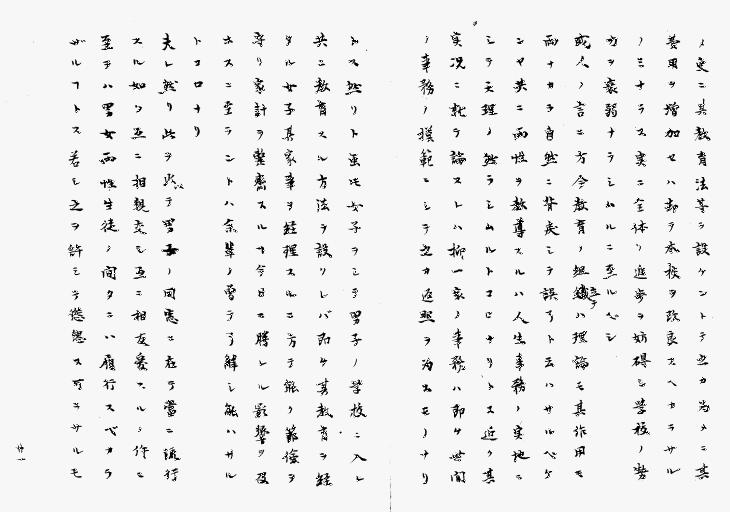 ノ更ニ其教育法等ヲ設ケントテ之カ為メニ其
費用ヲ増加セハ却テ本校ヲ改良スヘカラサル
ノミナラス実ニ全体ノ進歩ヲ妨碍シ学校ノ勢
力ヲ衰弱ナラシムルニ至ルベシ
或人ノ言ニ方今教育ノ組織ハ理論モ其作用モ
両ナカラ自然ニ背戻シテ誤アリト云ハサルベケ
ンヤ共ニ両性ヲ教導スルハ人生事務ノ実地ニ
シテ天理ノ然ラシムルトコロナリトス近ク其
実况ニ就テ論ストハ抑一家ノ事務ハ即ケ世間
ノ事務ノ摸範ニシテ之カ返照ヲ為スモノナリ
トス然リト虽𪜈女子ヲシテ男子ノ学校ニ入レ
共ニ教育スル方法ヲ設リレバ即ケ其教育ヲ経
タル女子其家事ヲ経理スルニ方テ能ク節倹ヲ
守リ家計ヲ整齋スルヿ今日ニ勝レル影響ヲ及
ホスニ至ラントハ余輩ノ曽テ了解シ能ハサル
トコロナリ
夫レ然リ此ヲ以テ男女ノ同憲ニ在テ嘗ニ流行
スル如ク互ニ相親交シ互ニ相友愛スルノ作ニ
至テハ男女両性生徒ノ間タニハ履行スベカラ
ザルヿトス若シ之ヲ許シテ慫慂ス可ラサルモ
廿一